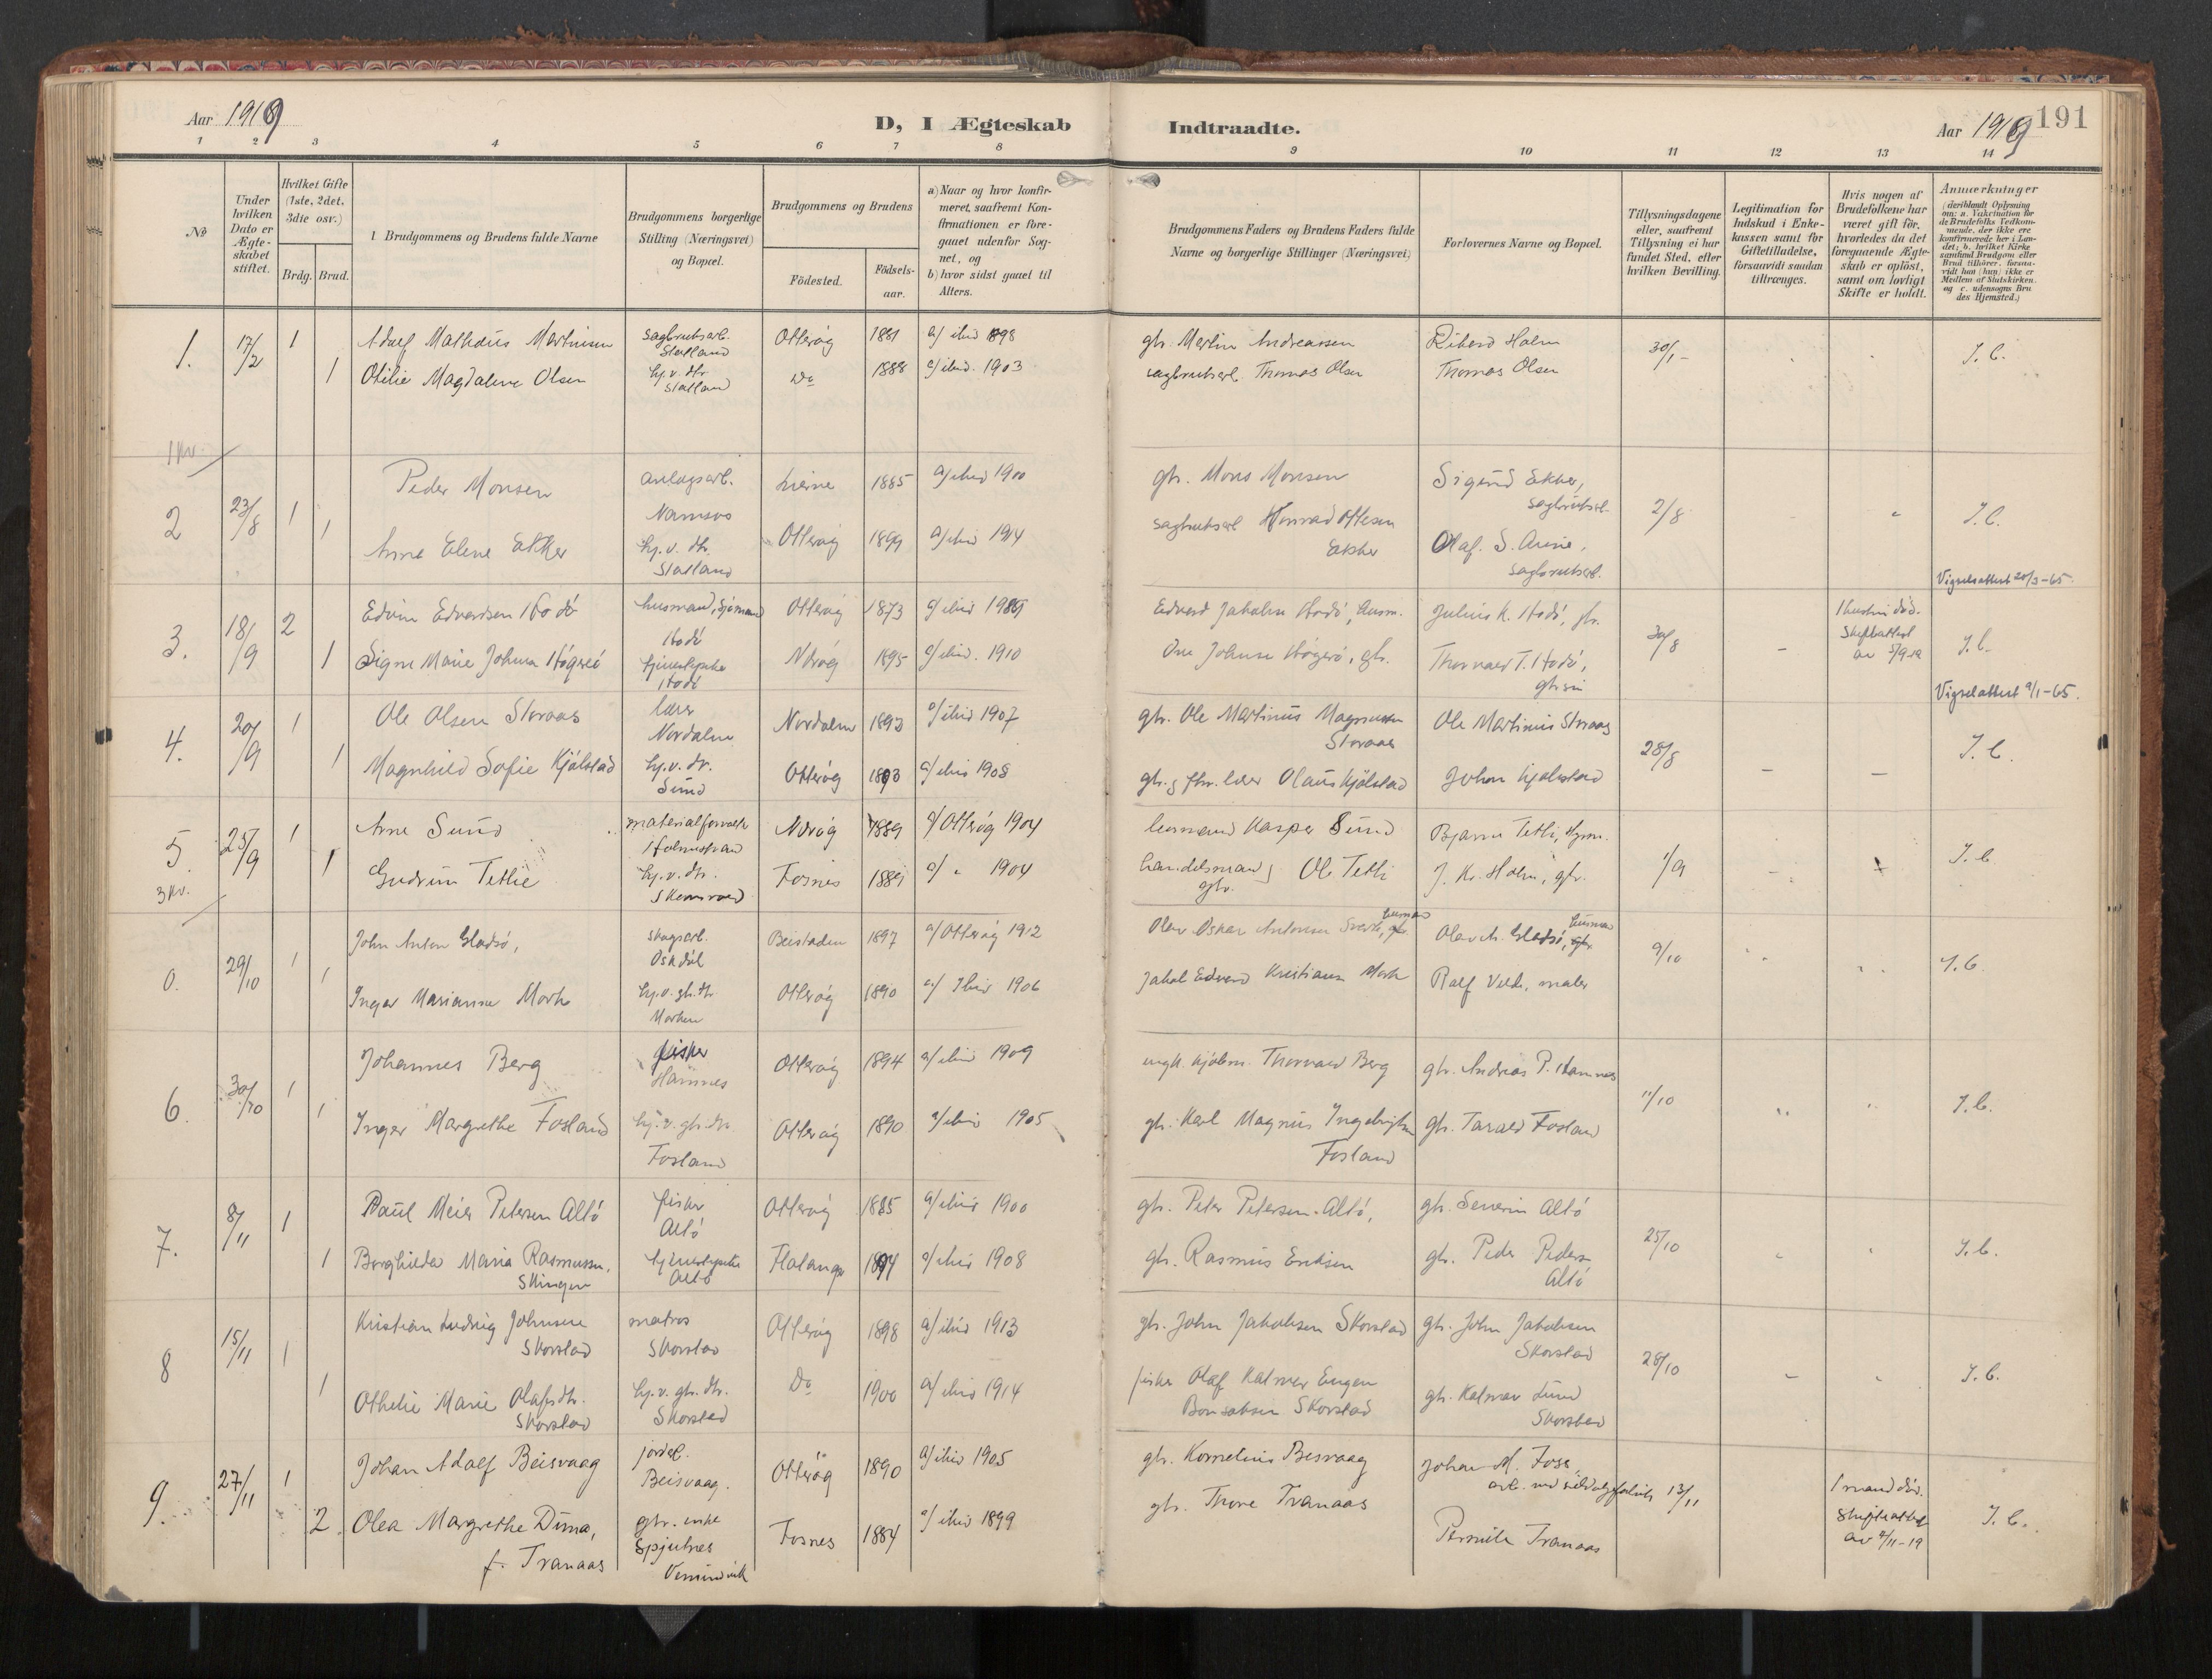 Aar 1919
D, I Ægteskab
Indtraadte.
Aar 1919
191
1 2 3 4 5 6 7 8 9 10 11 12 13 14
No
Under hvilken Dato er Ægte- skabet stiftet.
Hvilket Gifte (1ste, 2det, 3die osv.)
Brdg. Brud.
Brudgommens og Brudens fulde Navne
Brudgommens borgerlige Stilling (Næringsvei) og Bopæl.
Brudgommens og Brudens
Födested.
Födsels- aar.
a) Naar og hvor konfir- meret, saafremt Kon- firmationen er fore- gaaet udenfor Sog- net, og b) hvor sidst gaaet til Alters.
Brudgommens Faders og Brudens Faders fulde Navne og borgerlige Stillinger (Næringsvei)
Forlovernes Navne og Bopæl.
Tillysningsdagene eller, saafremt Tillysning ei har fundet Sted, efter hvilken Bevilling.
Legitimation for Indskud i Enke- kassen samt for Giftetilladelse, forsaavidt saadan tiltrænges.
Hvis nogen af Brudefolkene har været gift før, hvorledes da det foregaaende Ægte- skab er oplöst, samt om lovligt Skifte er holdt.
Anmærkninger (deriblandt Oplysning om: a. Vakcination for de Brudefolks Vedkom- mende, der ikke ere konfirmerede her i Lan- det; b. hvilket Kirke- samfund Brudgom eller Brud tilhörer, forsaa- vidt han (hun) ikke er Medlem af Statskirken, og c. udensogns Bru- des Hjemsted.)
1. 17/2 1 Adolf Mathæus Martinsen sagbruksarb. Statland Otterøy 1881 a/ ibid 1898 gbr. Martin Andreassen Rikard Holm 30/1 J. C.
1 Otilie Magdalene Olsen hj.v. dtr. Statland Do 1888 a/ ibid. 1903 sagbruksarb. Thomas Olsen Thomas Olsen
1 kv.
2 23/8 1 Peder Monsen anlegsarb. Namsos Lierne 1885 a/ ibid 1900 gbr. Mons Monsen Sigurd Ekker, sagbruksarb. 2/8 J. C.
1 Anna Elene Ekker hj.v. dtr. Statland Otterøy 1899 a/ ibid 1914 sagbruksarb Konrad Ottesen Ekker Olaf. S. Aune, sagbruksarb.
Vigselsattest 20/3-65.
3. 18/9 2 Edvin Edvardsen Hodø husmand, sjømand Hodø Otterøy 1873 a/ ibid 1889 Edvard Jakobsen Hodø, husm. Julius K. Hodø, gbr. 30/8 1 hustru død. Skifteattest av 5/9-19 J. C.
1 Signe Marie Johnsen tjenestepike Hodø Nærøy 1895 a/ ibid. 1910 Thorvald T. Hodø, gbr.søn
Vigselattest 9/1-65.
4. 20/9 1 Ole Olsen Storaas lærer Nordalen Nordalen 1893 a/ ibid 1907 gbr. Ole Martinus Magnussen Storaas Ole Martinus Storaas 28/8 J. C.
1 Magnhild Sofie Kjølstad hj.v. dr. Sund Otterøy 1893 a/ ibid 1908 gbr. & fhv. lærer Olaus Kjølstad Johan Kjølstad
5. 25/9 1 Arne Sund materialforvalter Holmestrand Nærøy 1889 a/ Otterøy 1904 lensmand Kasper Sund Bjarne Tetli, Hysm. 1/9 J. C.
1 Gudrun Tetlie hj.v. dtr. Fosnes 1889 a/ " 1904 handelsmand & gbr. Ole Tetli J. Kr. Holm, gbr.
3 kv.
0. 29/10 1 John Anton Gladsø, skogsarb. Beistaden 1897 a/ Otterøy 1912 Olav Oskar Antonsen husmand Olav A. Gladsø, husmand 9/10 J. C.
1 Inger Marianne Mork hj.v. gb.dtr Morken Otterøy 1890 a/ Ibid 1906 Jakob Edvard Kristiansen Mork Ralf Velde, maler
6. 30/10 1 Johannes Berg fisker Hamnes Otterøy 1894 a/ ibid 1909 ungk. Thorvald Berg gbr. Andreas P. Hamnes 11/10 J. C.
1 Inger Margrethe Fosland hj.v. gb.dtr Fosland Otterøy 1890 a/ ibid 1905 gbr. Karl Magnus Ingebrigtsen Fosland gbr. Tarald Fosland
7. 8/11 1 Paul Meier Petersen Altø fisker Altø Otterøy 1885 a/ ibid 1900 gbr. Peter Petersen Altø, gbr. Severin Altø 25/10 J. C.
1 Borghilda Maria Rasmussen, Skingen tjenestepike Altø Flatanger 1894 a/ ibid 1908 gbr. Rasmus Eriksen gbr. Peder Peders. Altø
8 15/11 1 Kristian Ludvig Johnsen Skorstad matros Skorstad Otterøy 1898 a/ ibid 1913 gbr. John Jakobsen Skorstad gbr. John Jakobsen Skorstad 28/10 J. C.
1 Othelie Marie Olafsdtr. Skorstad hj.v. gb. dtr. Skorstad Do 1900 a/ ibid 1914 fisker Olaf Kalmer Eugen Skorstad gbr. Kalmar Lund Skorstad
9. 27/11 1 Johan Adolf Beisvaag jordeb. Beisvaag. Otterøy 1890 a/ ibid 1905 gbr. Kornelius Besvaag Johan M. Foss arb. ved 13/11 1 mand død. Skifteattest av 2/11-19 J. C.
2. Olea Margrethe Duna, f. Tranaas gbr. enke Spjutnes Vemundvik Fosnes 1884 a/ ibid 1899 gbr. Thore Tranaas Pernila Tranaas